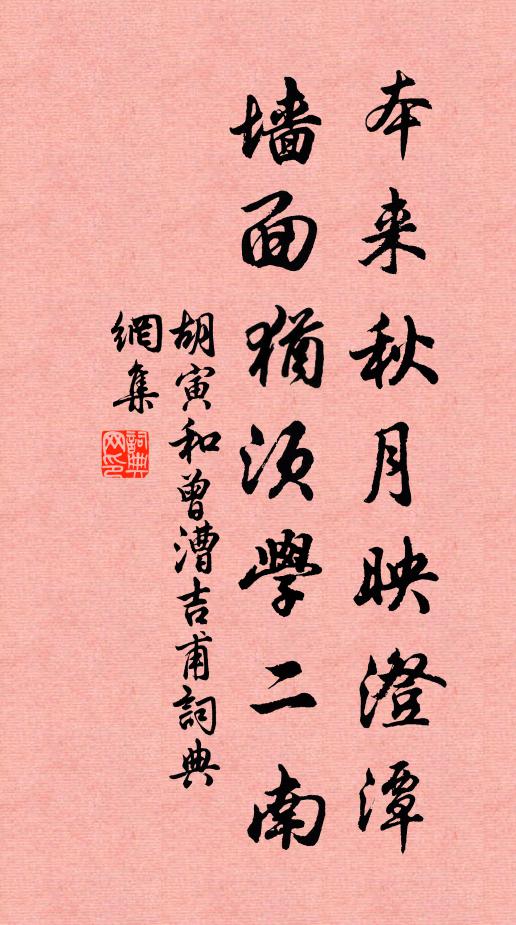 本来秋月映澄潭
墙面犹须学二南
胡寅和曾漕吉甫詞典
網集
詞典網印